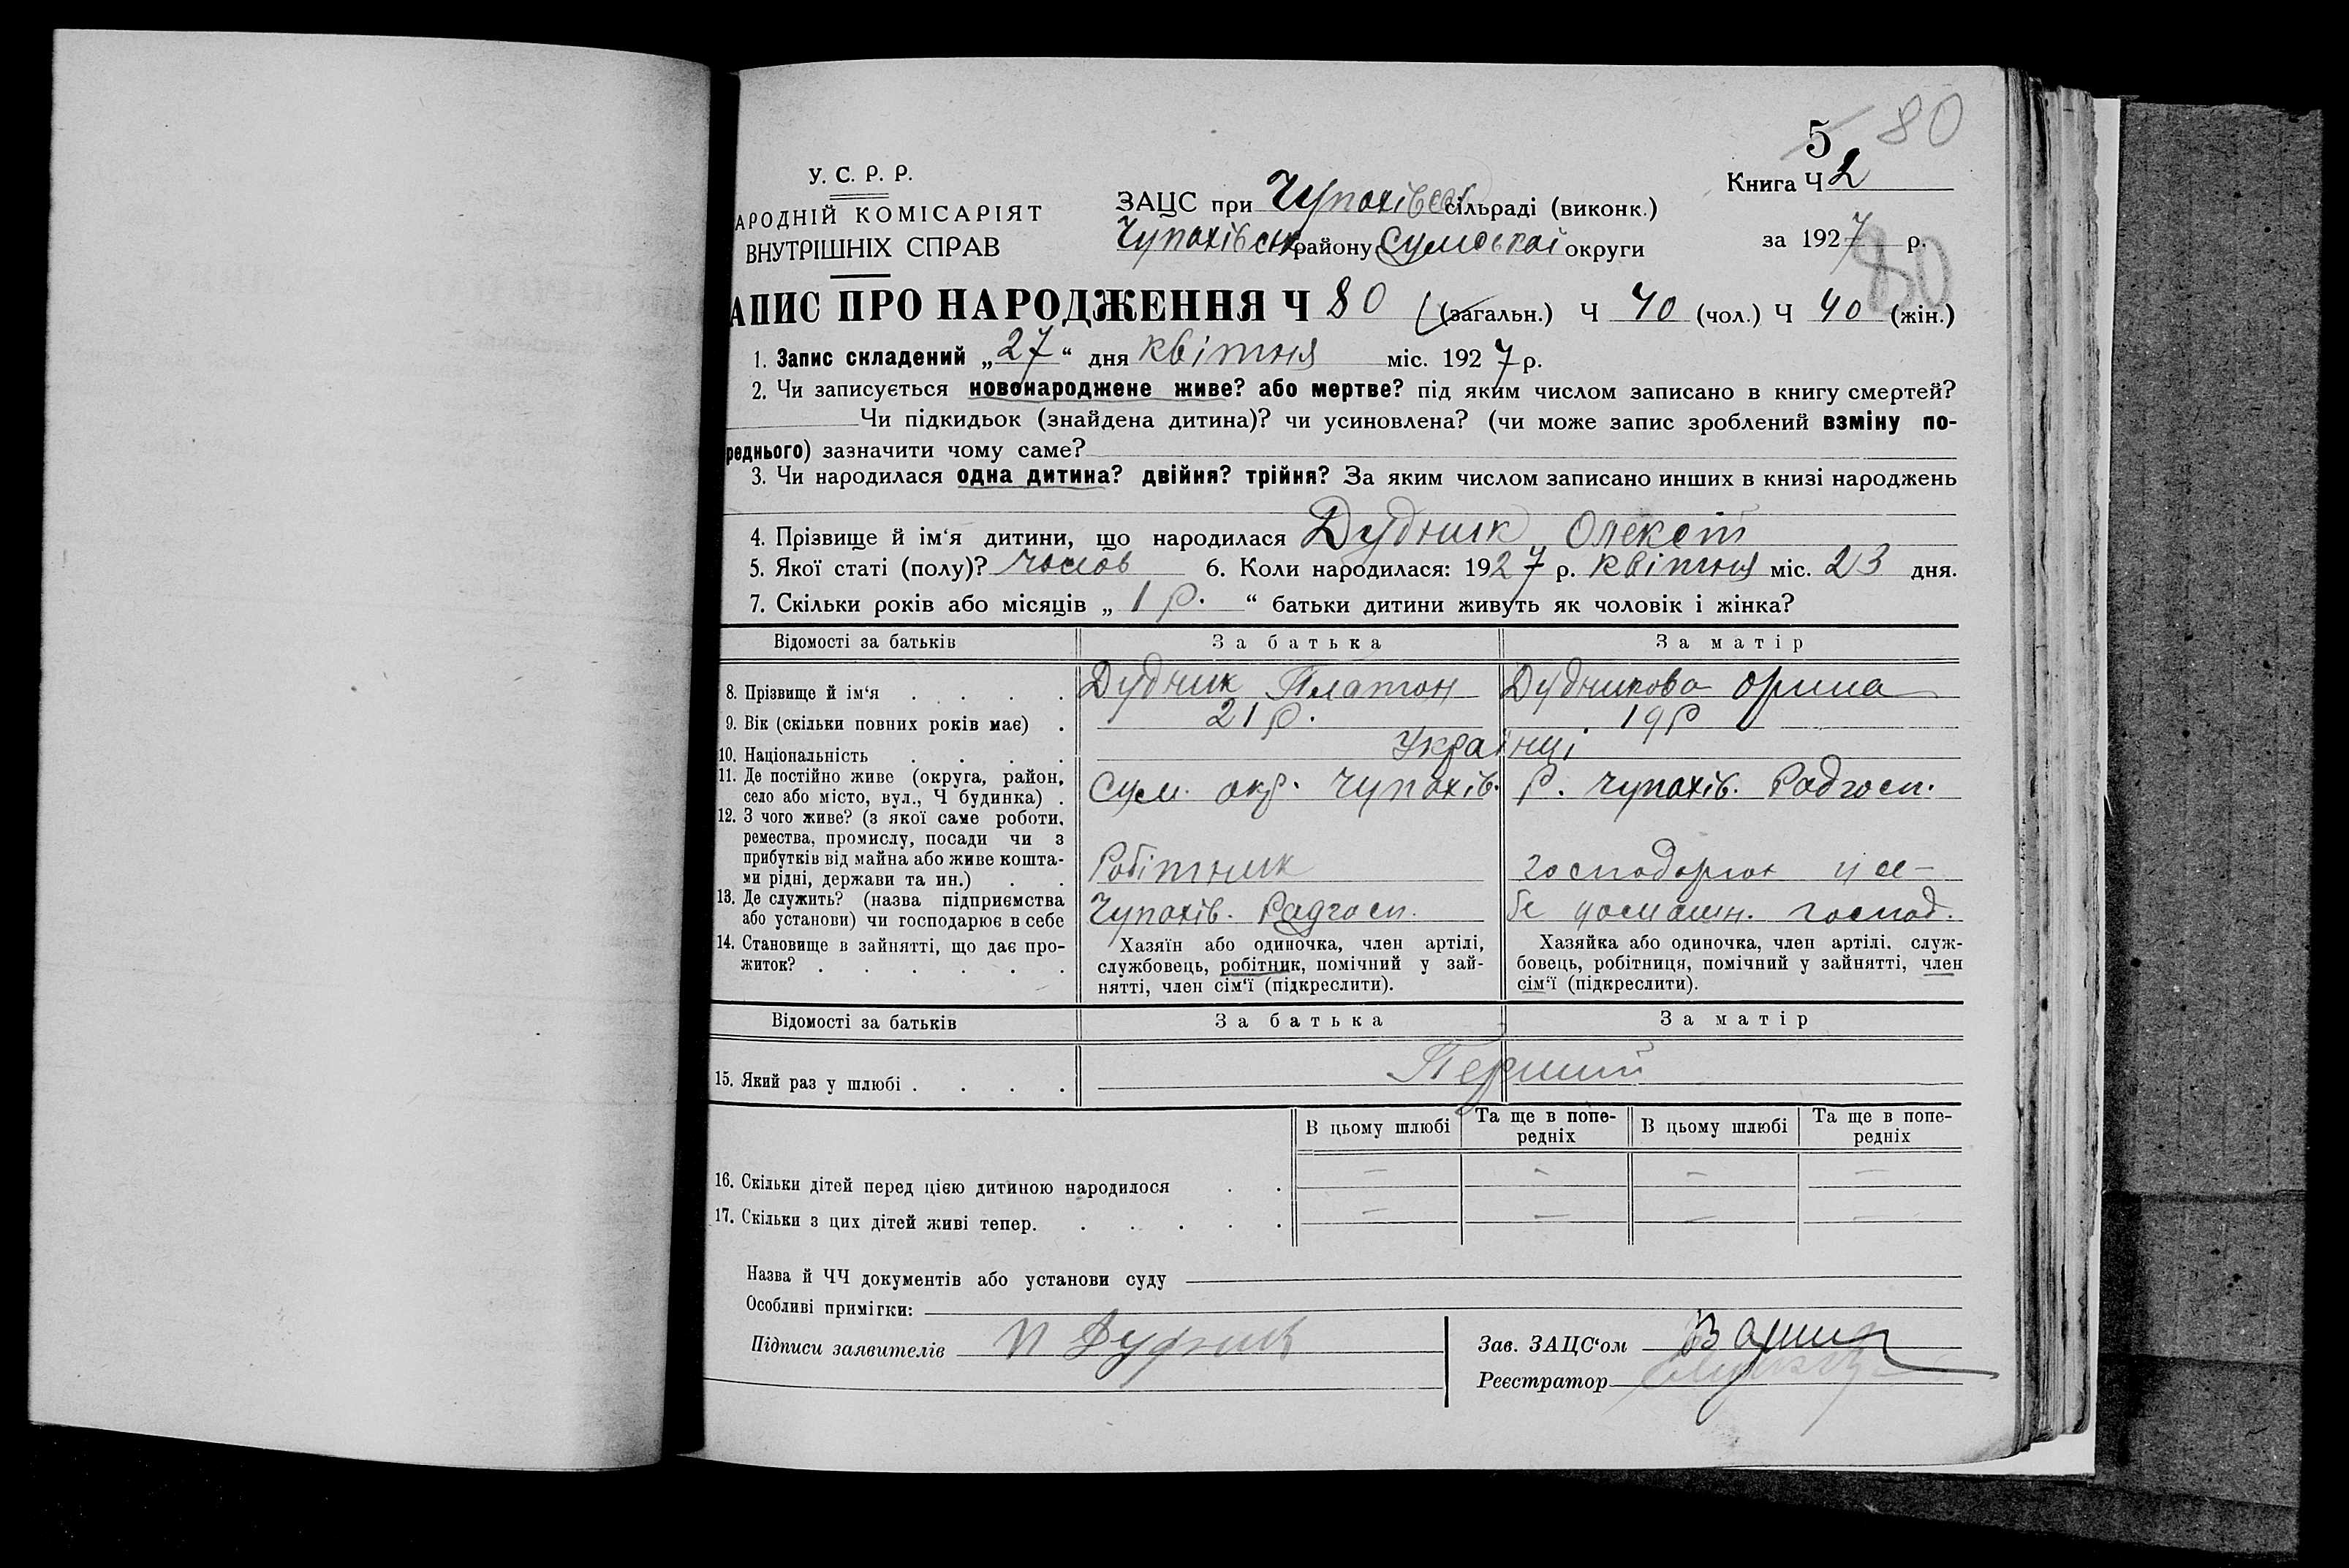 5 80
У. С. Р. Р.
АРОДНІЙ КОМІСАРІЯТ
ВНУТРІШНІХ СПРАВ
ЗАЦС при Чупахівськ сільраді (виконк.)
Чупахівськ району Сумської округи
Книга Ч 2
за 1927 р.
80
АПИС ПРО НАРОДЖЕННЯ Ч 80 (загальн.) Ч 40 (чол.) Ч 40 (жін.)
1. Запис складений „27“ дня квітня міс. 1927 р.
2. Чи записується новонароджене живе? або мертве? під яким числом записано в книгу смертей?
Чи підкидьок (знайдена дитина)? чи усиновлена? (чи може запис зроблений взміну по-
реднього) зазначити чому саме?
3. Чи народилася одна дитина? двійня? трійня? За яким числом записано инших в книзі народжень
4. Прізвище й ім‘я дитини, що народилася Дудник Олексій
5. Якої статі (полу)? чолов 6. Коли народилася: 1927 р. квітня міс. 23 дня.
7. Скільки років або місяців „1 р.“ батьки дитини живуть як чоловік і жінка?
Відомості за батьків За батька За матір
8. Прізвище й ім‘я . . . . Дудник Платон Дудникова Орина
9. Вік (скільки повних років має) . 21 р. 19 р
10. Національність . . . . Українці
11. Де постійно живе (округа, район, село або місто, вул., Ч будинка) . Сум. окр. Чупахів. Р. Чупахів. Радгосп.
12. З чого живе? (з якої саме роботи,
ремества, промислу, посади чи з
прибутків від майна або живе кошта-
ми рідні, держави та ин.) . . Робітник
13. Де служить? (назва підприємства
або установи) чи господарює в себе Чупахів. Радгосп. бе домашн. господ.
14. Становище в зайнятті, що дає про-
житок? . . . . . .
Хазяїн або одиночка, член артілі,
службовець, робітник, помічний у зай-
нятті, член сім‘ї (підкреслити).
Хазяйка або одиночка, член артілі. служ-
бовець, робітниця, помічний у зайнятті, член
сім‘ї (підкреслити).
Відомості за батьків За батька За матір
15. Який раз у шлюбі . . . . Перший
В цьому шлюбі Та ще в попе-редніх В цьому шлюбі Та ще в попе-редніх
16. Скільки дітей перед цією дитиною народилося . . — — — —
17. Скільки з цих дітей живі тепер. . . . . . — — — —
Назва й ЧЧ документів або установи суду
Особливі примітки:
Підписи заявителів П Дудник
Зав. ЗАЦС‘ом
Реєстратор